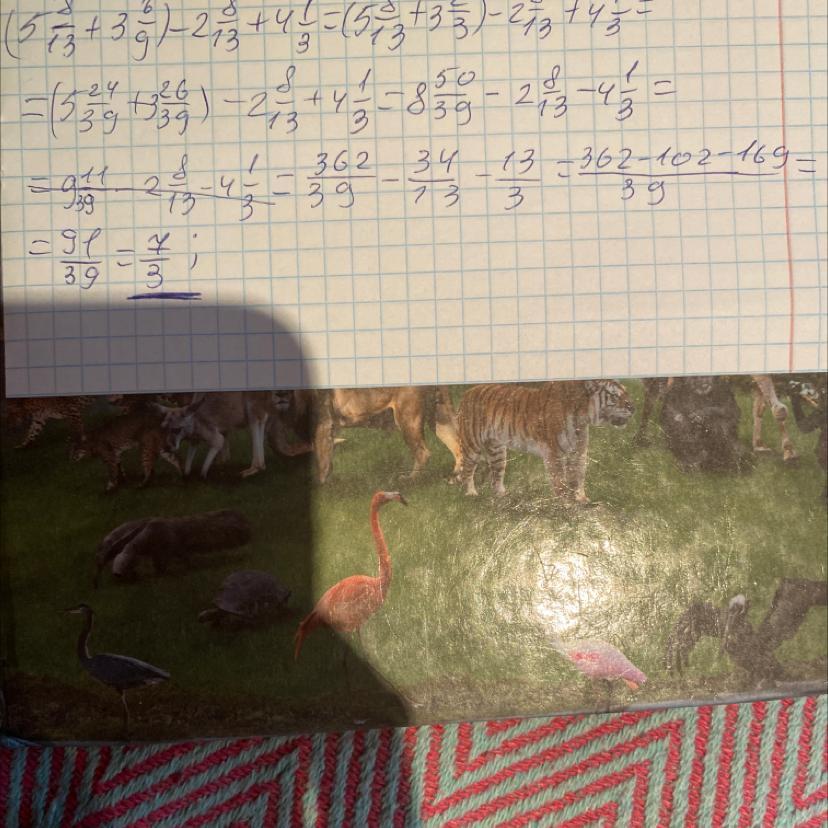 (5 8/13 + 3 6/9) - 2 8/13 + 4 1/3 = (5 8/13 + 3 2/3) - 2 8/13 + 4 1/3 =
= (5 24/39 + 3 26/39) - 2 8/13 + 4 1/3 = 8 50/39 - 2 8/13 - 4 1/3 =
= 9 11/39 - 2 8/13 - 4 1/3 = 362/39 - 34/13 - 13/3 = (362-102-169)/39 =
= 91/39 = 7/3 ;